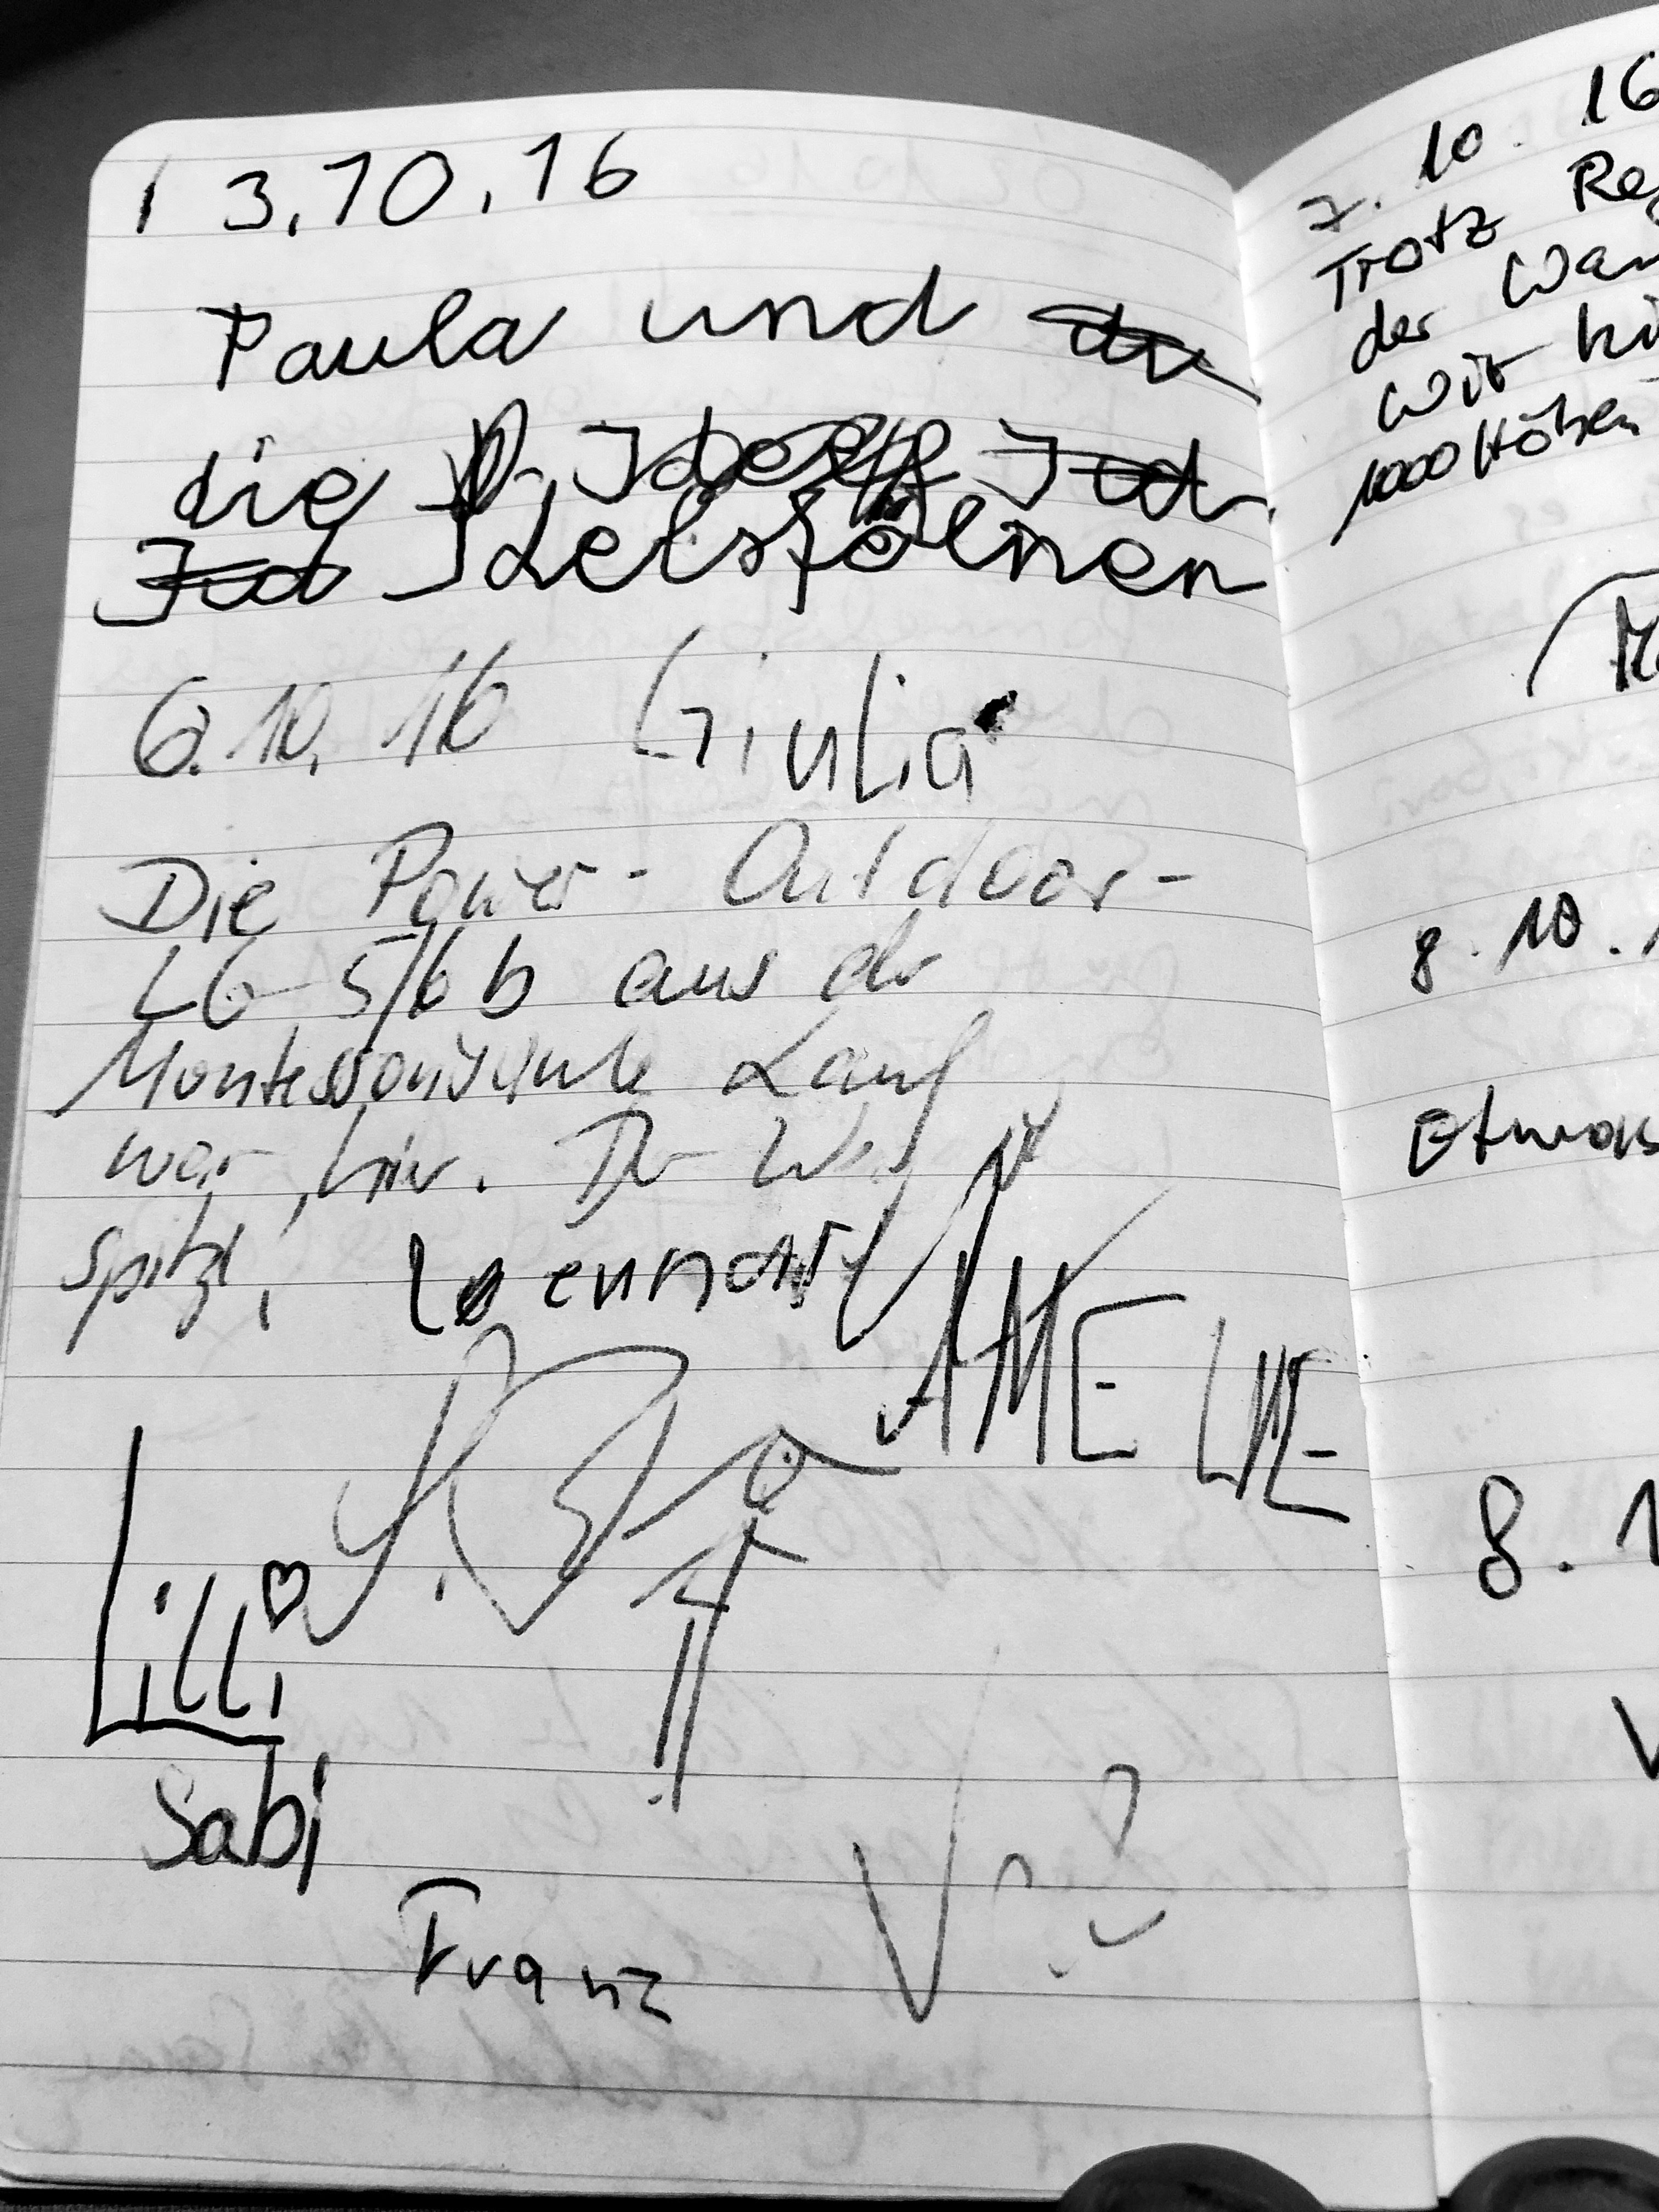 3.10.16
Paula und
die
Idelsfelnen
6.10.16 Giulia
Die Power-Outdoor-
LG 5/6 b aus der
Montessorischule Lauf
war hier. Der Weg ist
spitze! Lennart
AMELIE
Lilli
Sabi
Franz
7.10.16
Trotz
der
Wir
1000 Höhen
8.10.
Etwas
8.